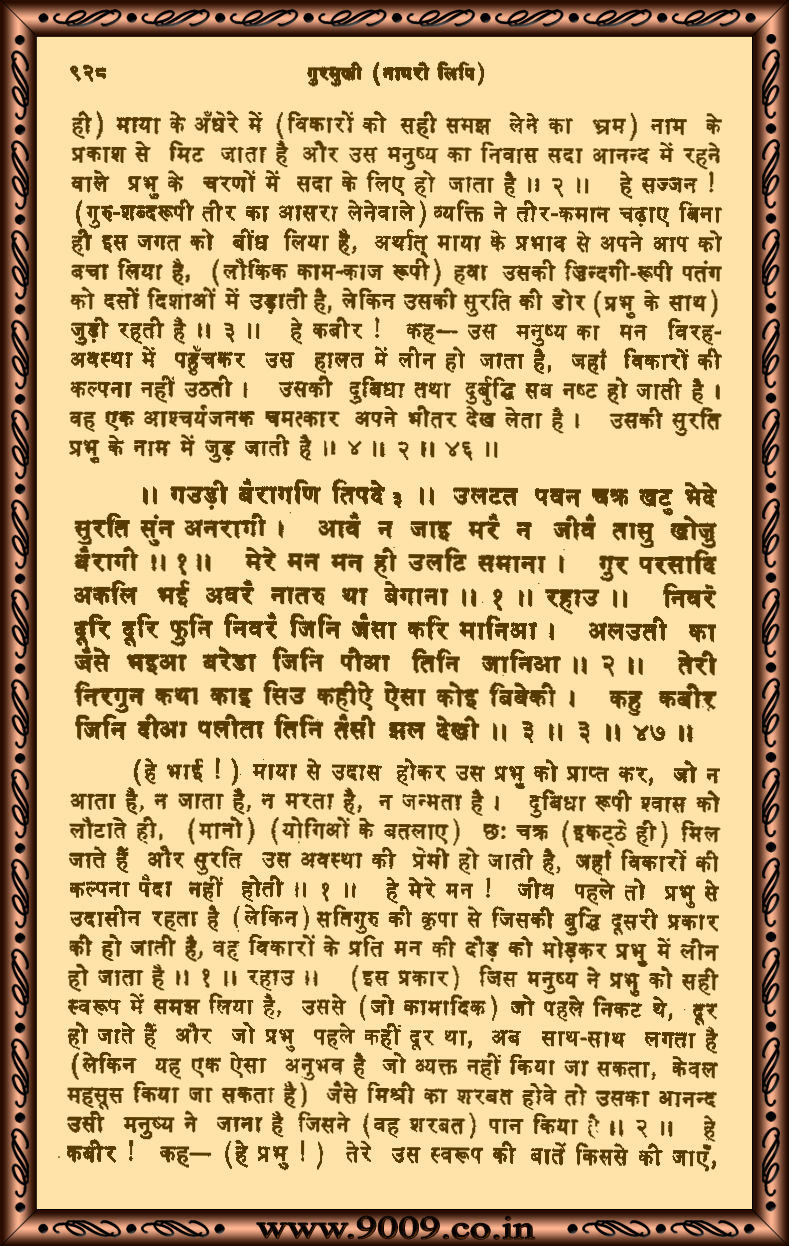 ९२८ गुरमुखी (नागरी लिपि)
ही) माया के अँधेरे में (विकारों को सही समझ लेने का भ्रम) नाम के
प्रकाश से मिट जाता है और उस मनुष्य का निवास सदा आनन्द में रहने
वाले प्रभु के चरणों में सदा के लिए हो जाता है ॥ २ ॥ हे सज्जन !
(गुरु-शब्दरूपी तीर का आसरा लेनेवाले) व्यक्ति ने तीर-कमान चढ़ाए बिना
ही इस जगत को बींध लिया है, अर्थात् माया के प्रभाव से अपने आप को
बचा लिया है, (लौकिक काम-काज रूपी) हवा उसकी ज़िन्दगी-रूपी पतंग
को दसों दिशाओं में उड़ाती है, लेकिन उसकी सुरति की डोर (प्रभु के साथ)
जुड़ी रहती है ॥ ३ ॥ हे कबीर ! कह— उस मनुष्य का मन विरह-
अवस्था में पहुँचकर उस हालत में लीन हो जाता है, जहाँ विकारों की
कल्पना नहीं उठती । उसकी दुबिधा तथा दुर्बुद्धि सब नष्ट हो जाती है ।
वह एक आश्चर्यजनक चमत्कार अपने भीतर देख लेता है । उसकी सुरति
प्रभु के नाम में जुड़ जाती है ॥ ४ ॥ २ ॥ ४६ ॥
॥ गउड़ी बैरागणि तिपदे ३ ॥ उलटत पवन चक्र खटु भेदे
सुरति सुंन अनरागी । आवै न जाइ मरै न जीवै तासु खोजु
बैरागी ॥ १ ॥ मेरे मन मन ही उलटि समाना । गुर परसादि
अकलि भई अवरै नातरु था बेगाना ॥ १ ॥ रहाउ ॥ निवरै
दूरि दूरि फुनि निवरै जिनि जैसा करि मानिआ । अलउती का
जैसे भइआ बरेडा जिनि पीआ तिनि जानिआ ॥ २ ॥ तेरी
निरगुन कथा काइ सिउ कहीऐ ऐसा कोइ बिबेकी । कहु कबीर
जिनि दीआ पलीता तिनि तैसी झल देखी ॥ ३ ॥ ३ ॥ ४७ ॥
(हे भाई ! ) माया से उदास होकर उस प्रभु को प्राप्त कर, जो न
आता है, न जाता है, न मरता है, न जन्मता है । दुबिधा रूपी श्वास को
लौटाते ही, (मानो) (योगिओं के बतलाए) छः चक्र (इकट्ठे ही) मिल
जाते हैं और सुरति उस अवस्था की प्रेमी हो जाती है, जहाँ विकारों की
कल्पना पैदा नहीं होती ॥ १ ॥ हे मेरे मन ! जीव पहले तो प्रभु से
उदासीन रहता है (लेकिन) सतिगुरु की कृपा से जिसकी बुद्धि दूसरी प्रकार
की हो जाती है, वह विकारों के प्रति मन की दौड़ को मोड़कर प्रभु में लीन
हो जाता है ॥ १ ॥ रहाउ ॥ (इस प्रकार) जिस मनुष्य ने प्रभु को सही
स्वरूप में समझ लिया है, उससे (जो कामादिक) जो पहले निकट थे, दूर
हो जाते हैं और जो प्रभु पहले कहीं दूर था, अब साथ-साथ लगता है
(लेकिन यह एक ऐसा अनुभव है जो व्यक्त नहीं किया जा सकता, केवल
महसूस किया जा सकता है) जैसे मिश्री का शरबत होवे तो उसका आनन्द
उसी मनुष्य ने जाना है जिसने (वह शरबत) पान किया है ॥ २ ॥ हे
कबीर ! कह— (हे प्रभु ! ) तेरे उस स्वरूप की बातें किससे की जाएँ,
www.9009.co.in